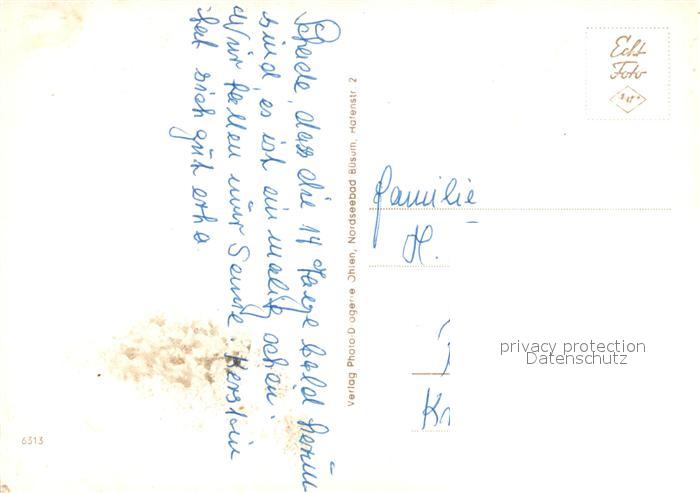 Schade, dass die 14 Taege bald herum
sind, es ist ein malig schön.
Wir hatten nur Sonne. Kerstin
hat sich gut erho
Verlag Photo-Drogerie Ohlen, Nordseebad Büsum, Hafenstr. 2
Echt
Foto
Familie
H.
privacy protection
Datenschutz
6313